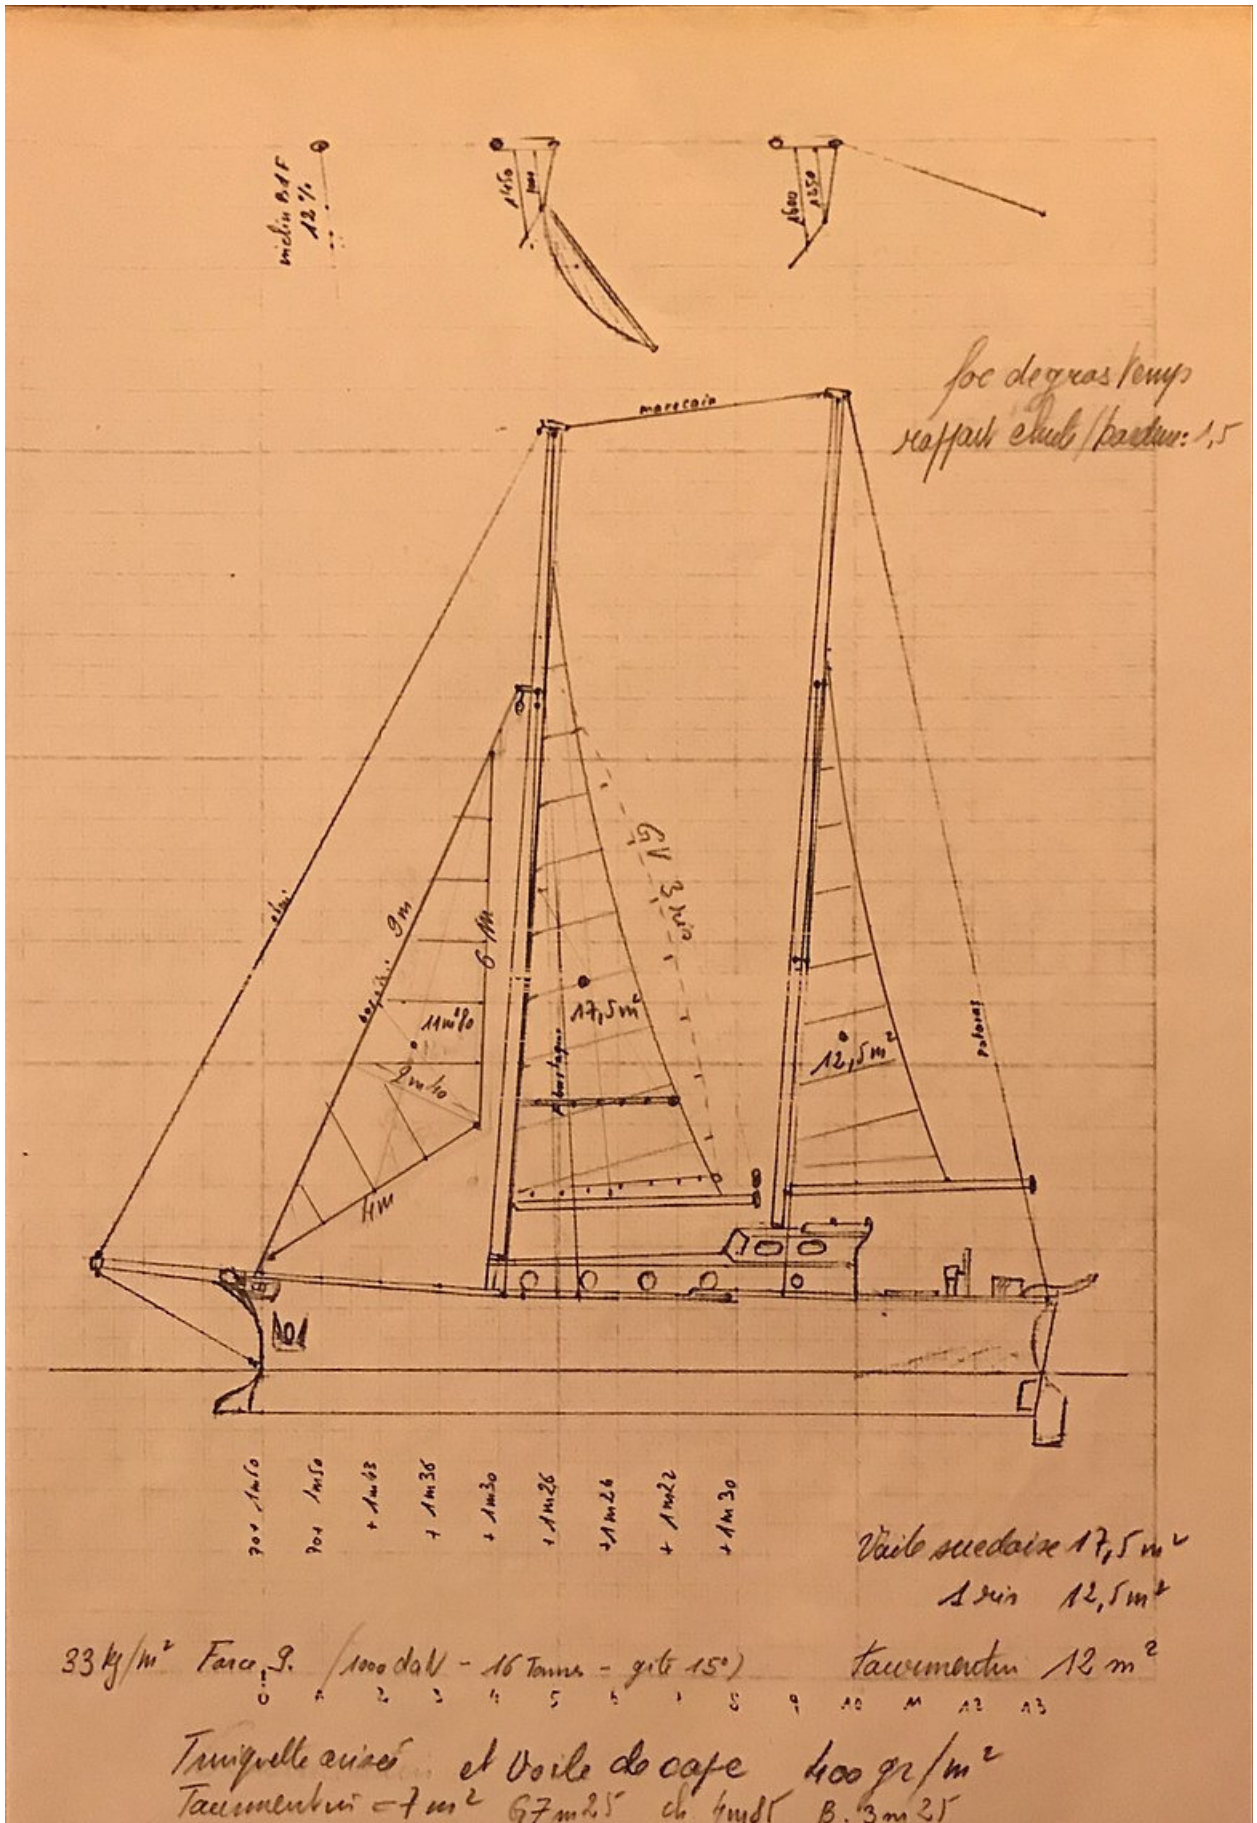 inclin B1F
12 %
1450
1000
1600
1250
foc de gros temp
rapport chute/bordure: 1,5
marocain
étai
9m
6m
GV 3 ris
17,5m²
11m²80
2m40
bastaque
12,5m²
pataras
4m
70+ 1m60
70+ 1m50
+ 1m43
+ 1m36
+ 1m30
+ 1m26
+ 1m24
+ 1m22
+ 1m30
Voile suedoise 17,5m²
1 ris 12,5m²
33 kg/m² Force 9. (1000 daN - 16 Tonnes - gite 15°) Tourmentin 12 m²
0 1 2 3 4 5 6 7 8 9 10 11 12 13
Trinquette arisée et Voile de cape 400 gr/m²
Tourmentin = 7 m² G7m25 ch. 4m85 B. 3m25